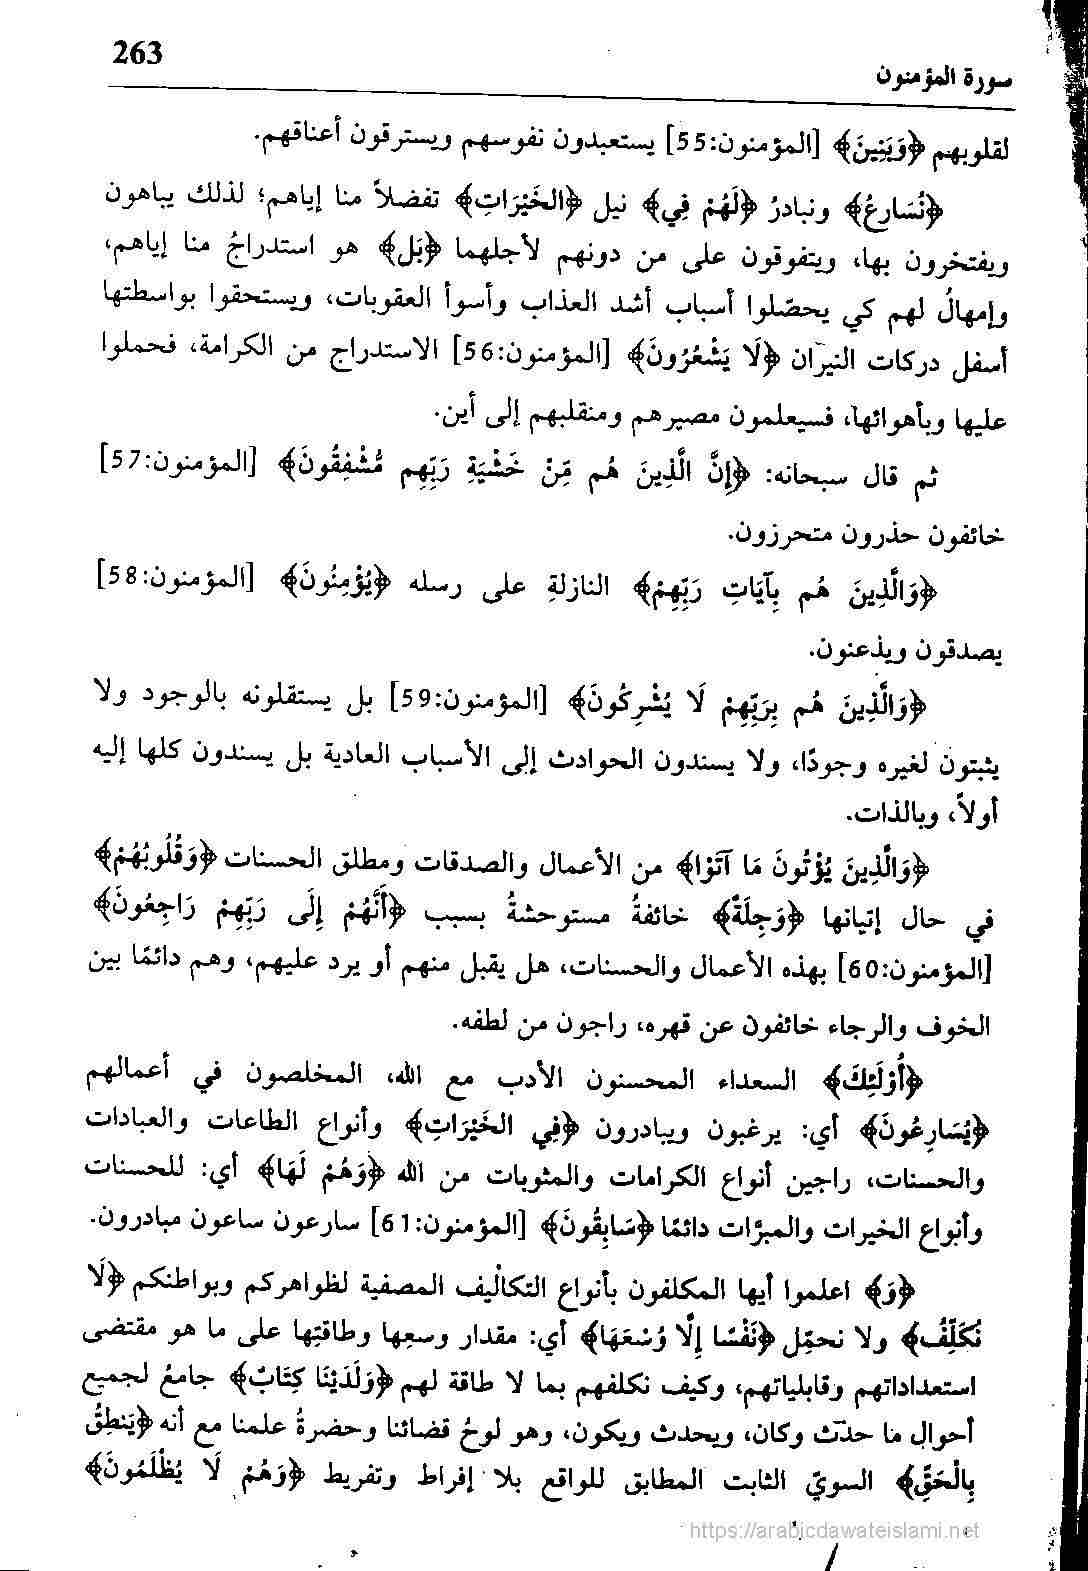 263
سورة المؤمنون
لقلوبهم ﴿وَبَنِينَ﴾ [المؤمنون:55] يستعبدون نفوسهم ويسترقون أعناقهم.
﴿نُسَارِعُ﴾ ونبادرُ ﴿لَهُمْ فِي﴾ نيل ﴿الخَيْرَاتِ﴾ تفضلاً منا إياهم؛ لذلك يباهون
ويفتخرون بها، ويتفوقون على من دونهم لأجلهما ﴿بَل﴾ هو استدراجُ منا إياهم،
وإمهالُ لهم كي يحصّلوا أسباب أشد العذاب وأسوأ العقوبات، ويستحقوا بواسطتها
أسفل دركات النيران ﴿لَا يَشْعُرُونَ﴾ [المؤمنون:56] الاستدراج من الكرامة، فحملوا
عليها وبأهوائها، فسيعلمون مصيرهم ومنقلبهم إلى أين.
ثم قال سبحانه: ﴿إِنَّ الَّذِينَ هُم مِّنْ خَشْيَةِ رَبِّهِم مُّشْفِقُونَ﴾ [المؤمنون:57]
خائفون حذرون متحرزون.
﴿وَالَّذِينَ هُم بِآيَاتِ رَبِّهِمْ﴾ النازلةِ على رسله ﴿يُؤْمِنُونَ﴾ [المؤمنون:58]
يصدقون ويذعنون.
﴿وَالَّذِينَ هُم بِرَبِّهِمْ لَا يُشْرِكُونَ﴾ [المؤمنون:59] بل يستقلونه بالوجود ولا
يثبتون لغيره وجودًا، ولا يسندون الحوادث إلى الأسباب العادية بل يسندون كلها إليه
أولاً، وبالذات.
﴿وَالَّذِينَ يُؤْتُونَ مَا آتَوْا﴾ من الأعمال والصدقات ومطلق الحسنات ﴿وَقُلُوبُهُمْ﴾
في حال إتيانها ﴿وَجِلَةٌ﴾ خائفةُ مستوحشةُ بسبب ﴿أَنَّهُمْ إِلَى رَبِّهِمْ رَاجِعُونَ﴾
[المؤمنون:60] بهذه الأعمال والحسنات، هل يقبل منهم أو يرد عليهم، وهم دائمًا بين
الخوف والرجاء خائفون عن قهره، راجون من لطفه.
﴿أُوْلَئِكَ﴾ السعداء المحسنون الأدب مع الله، المخلصون في أعمالهم
﴿يُسَارِعُونَ﴾ أي: يرغبون ويبادرون ﴿فِي الخَيْرَاتِ﴾ وأنواع الطاعات والعبادات
والحسنات، راجين أنواع الكرامات والمثوبات من الله ﴿وَهُمْ لَهَا﴾ أي: للحسنات
وأنواع الخيرات والمبرَّات دائمًا ﴿سَابِقُونَ﴾ [المؤمنون:61] سارعون ساعون مبادرون.
﴿وَ﴾ اعلموا أيها المكلفون بأنواع التكاليف المصفية لظواهركم وبواطنكم ﴿لَا
نُكَلِّفُ﴾ ولا نحمِّل ﴿نَفْسًا إِلَّا وُسْعَهَا﴾ أي: مقدار وسعِها وطاقتِها على ما هو مقتضى
استعداداتهم وقابلياتهم، وكيف نكلفهم بما لا طاقة لهم ﴿وَلَدَيْنَا كِتَابٌ﴾ جامعُ لجميع
أحوال ما حدَث وكان، ويحدث ويكون، وهو لوحُ قضائنا وحضرةُ علمنا مع أنه ﴿يَنطِقُ
بِالْحَقِّ﴾ السويّ الثابت المطابق للواقع بلا إفراط وتفريط ﴿وَهُمْ لَا يُظْلَمُونَ﴾
https://arabicdawateislami.net